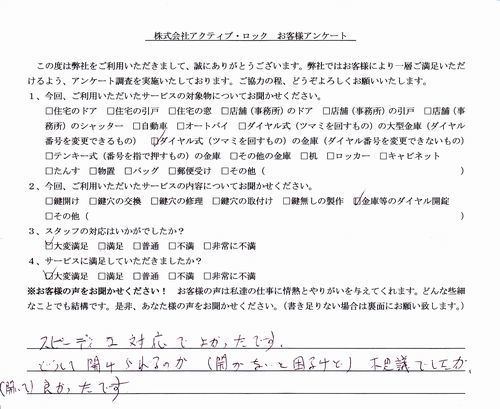 株式会社アクティブ・ロック　お客様アンケート
この度は弊社をご利用いただきまして、誠にありがとうございます。弊社ではお客様により一層ご満足いただ
けるよう、アンケート調査を実施いたしております。ご協力の程、どうぞよろしくお願いいたします。
1、今回、ご利用いただいたサービスの対象物についてお聞かせください。
□住宅のドア　□住宅の引戸　□住宅の窓　□店舗（事務所）のドア　□店舗（事務所）の引戸　□店舗（事
務所）のシャッター　□自動車　□オートバイ　□ダイヤル式（ツマミを回すもの）の大型金庫（ダイヤル
番号を変更できるもの）　☑ダイヤル式（ツマミを回すもの）の金庫（ダイヤル番号を変更できないもの）
□テンキー式（番号を指で押すもの）の金庫　□その他の金庫　□机　□ロッカー　□キャビネット
□たんす　□物置　□バッグ　□郵便受け　□その他（　　　）
2、今回、ご利用いただいたサービスの内容についてお聞かせください。
□鍵開け　□鍵穴の交換　□鍵穴の修理　□鍵穴の取付け　□鍵無しの製作　☑金庫等のダイヤル開錠
□その他（　　　）
3、スタッフの対応はいかがでしたか？
☑大変満足　□満足　□普通　□不満　□非常に不満
4、サービスに満足していただきましたか？
☑大変満足　□満足　□普通　□不満　□非常に不満
※お客様の声をお聞かせください！　お客様の声は私達の仕事に情熱とやりがいを与えてくれます。どんな些細
なことでも結構です。是非、あなた様の声をお聞かせください。（書き足りない場合は裏面にお願い致します。）
スピーディな対応でよかったです。
どうして開けられるのか（開かないと困るけど）不思議でしたが
（開いて）良かったです